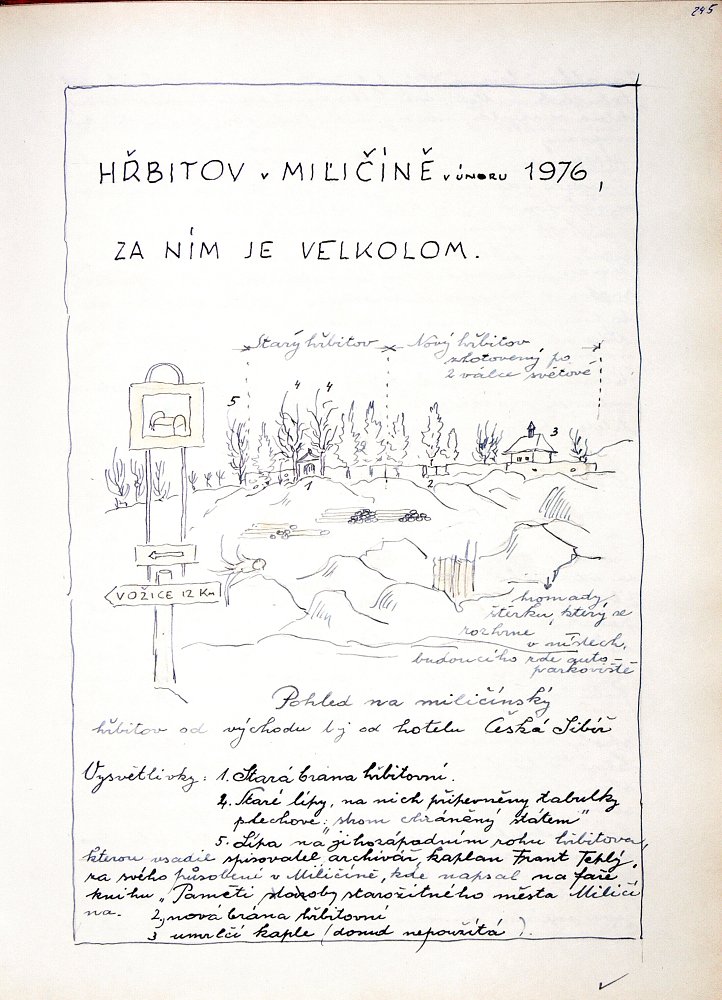 245
HŘBITOV v MILIČÍNĚ v ÚNORU 1976,
ZA NÍM JE VELKOLOM.
Starý hřbitov
Nový hřbitov
zhotovený po
2 válce světové
5
4
4
3
1
2
VOŽICE 12 Km
hromady
štěrku, který se
rozhrne
v místech,
budoucího zde auto-
parkoviště
Pohled na miličínský
hřbitov od východu t.j od hotelu Česká Sibiř
Vysvětlivky: 1. Stará brana hřbitovní.
4. Staré lípy, na nich připevněny tabulky
plechové: strom chráněný státem"
5. Lípa na jihozápadním rohu hřbitova,
kterou vsadil spisovatel archivář, kaplan Frant Teplý,
za svého působení v Miličíně, kde napsal na faře
knihu „Paměti starožitného města Miličí
na.
2, nová brana hřbitovní
3 umrlčí kaple (dosud nepoužitá).